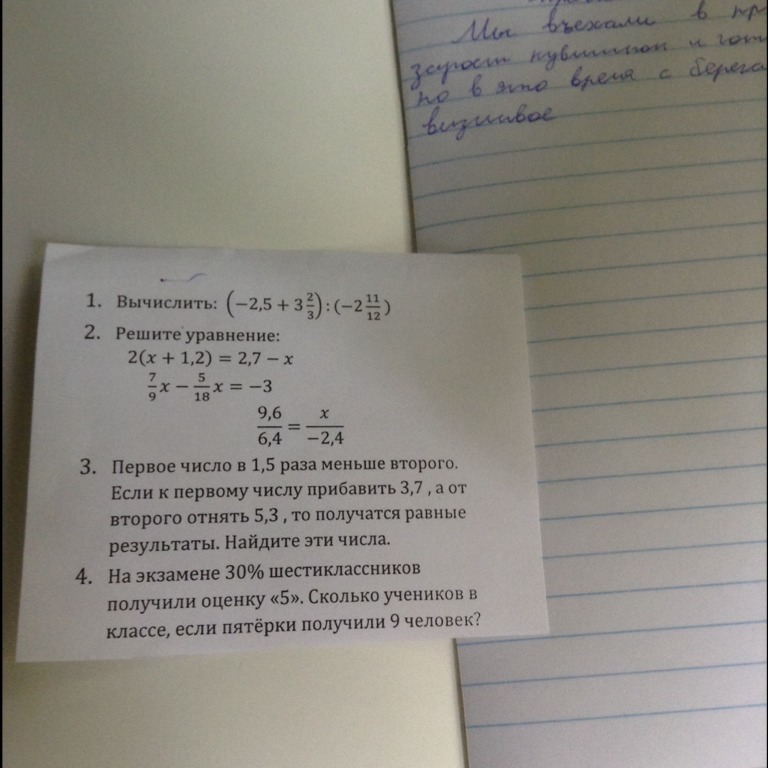 Мы въехали в
но в это время с берега
1. Вычислить: (−2,5 + 3 2/3) : (−2 11/12)
2. Решите уравнение:
2(x + 1,2) = 2,7 − x
7/9 x − 5/18 x = −3
9,6/6,4 = x/−2,4
3. Первое число в 1,5 раза меньше второго.
Если к первому числу прибавить 3,7 , а от
второго отнять 5,3 , то получатся равные
результаты. Найдите эти числа.
4. На экзамене 30% шестиклассников
получили оценку «5». Сколько учеников в
классе, если пятёрки получили 9 человек?